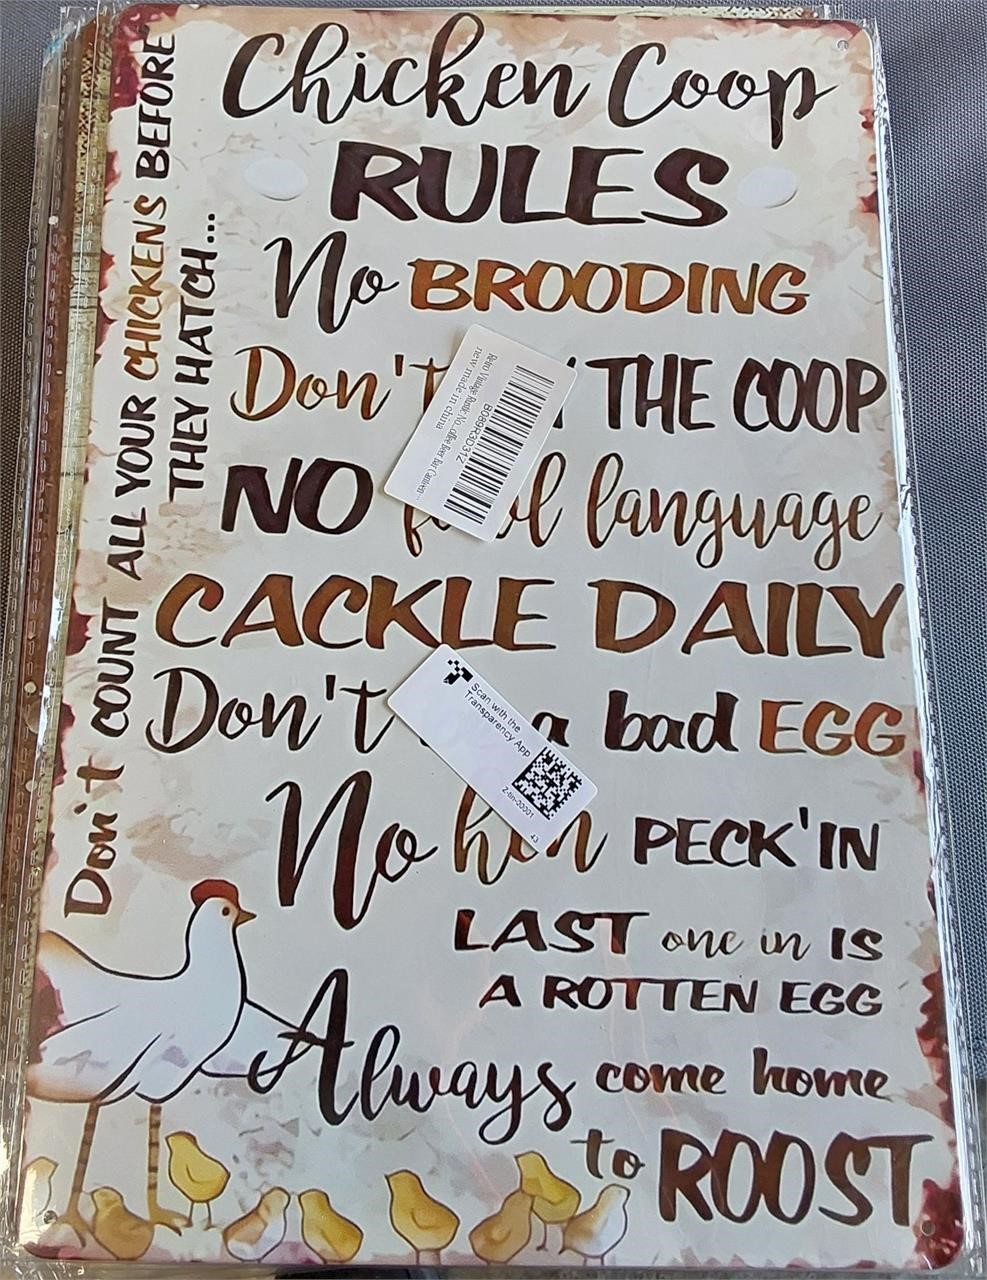 Chicken Coop
RULES
No BROODING
Don't THE COOP
NO language
CACKLE DAILY
Don't a bad EGG
No hen PECK'IN
LAST one in IS
A ROTTEN EGG
Always come home
to ROOST
Don't COUNT ALL YOUR CHICKENS BEFORE
THEY HATCH...
B089R3D31Z
Retro Vintage Rustic No...offee Beer Bar Canteen...
new made in china
Scan with the
Transparency App
Z-tin-00001
43